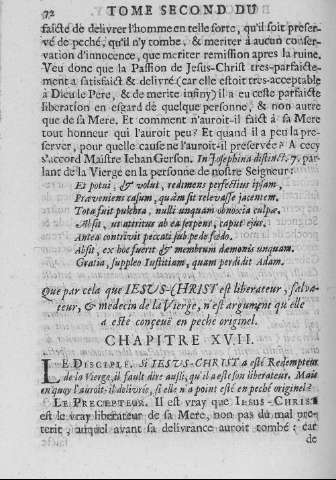 92 TOME SECOND DU
faicte de delivrer l'homme en telle sorte, qu'il soit preser-
vé de peché, qu'il n'y tombe, & meriter à aucun conser-
vation d'innocence, que meriter remission apres la ruine.
Veu donc que la Passion de Jesus-Christ tres-parfaicte-
ment a satisfaict & delivré (car elle estoit tres-acceptable
à Dieu le Pere, & de merite infiny) il a eu ceste parfaicte
liberation en esgard de quelque personne, & non autre
que de sa Mere. Et comment n'auroit-il faict à sa Mere
tout honneur qui l'auroit peu? Et quand il a peu la pre-
server, pour quelle cause ne l'auroit-il preservée? A cecy
s'accord Maistre Iehan Gerson. In Josephina distinct. 7. par-
lant de la Vierge en la personne de nostre Seigneur:
Et potui, & volui, redimens perfectius ipsam,
Præveniens casum, quàm sit relevasse jacentem.
Tota fuit pulchra, nulli unquam obnoxia culpæ.
Absit, ut attritus ab ea serpens, caput ejus.
Antea contrivit peccati sub pede fœdo.
Absit, ex hoc fuerit & membrum dæmonis unquam.
Gratia, suppleo Iustitiam, quam perdidit Adam.
Que par cela que IESUS-CHRIST est liberateur, salva-
teur, & medecin de la Vierge, n'est argument qu'elle
a esté conçeuë en peche originel.
CHAPITRE XVII.
LE DISCIPLE. Si IESUS-CHRIST a esté Redempteur
de la Vierge, il fault dire aussi, qu'il a esté son liberateur. Mais
en quoy l'auroit-il delivré, si elle n'a point esté en peché originel?
LE PRECEPTEUR. Il est vray que IESUS-CHRIST
est le vray liberateur de sa Mere, non pas du mal pre-
terit, auquel avant sa delivrance auroit tombé: car
de